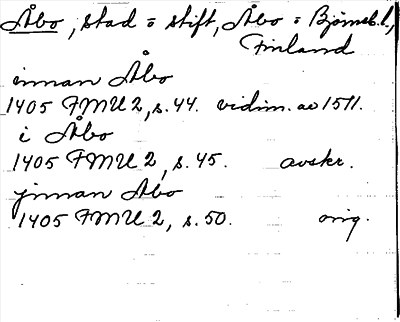 Åbo, stad o stift, Åbo o Björneb. l.,
Finland
innan Åbo
1405 FMU 2, s. 44. vidim. av 1511.
i Åbo
1405 FMU 2, s. 45. avskr.
jnnan Åbo
1405 FMU 2, s. 50. orig.